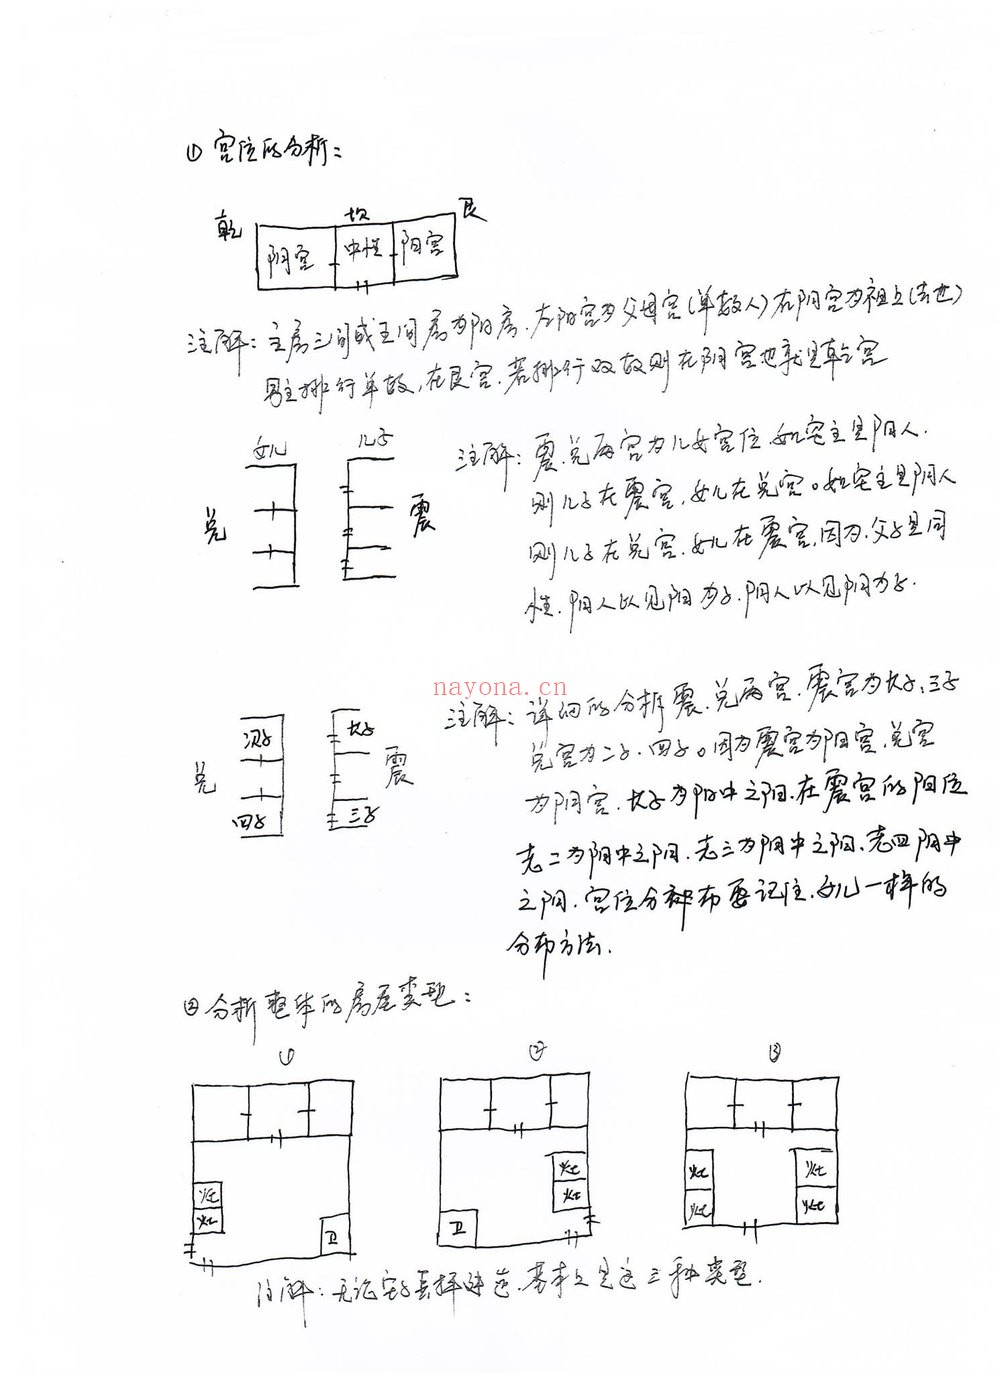 ① 宫位的分析：
乾 坎 艮
阴宫 中性 阳宫
注解：主房三间或五间房为阳房．左阳宫为父母宫(单数人)右阴宫为祖上(去世)
男主排行单数，在艮宫．若排行双数则在阴宫也就是乾宫
女儿 儿子
兑 震
注解：震．兑两宫为儿女宫位．如宅主是阳人．
则儿子在震宫．女儿在兑宫。如宅主是阴人
则儿子在兑宫．女儿在震宫．因为．父子是同
性．阳人以见阳为子．阴人以见阴为子．
nayona.cn
次子 长子
兑 震
四子 三子
注解：详细的分析震．兑两宫．震宫为长子．三子
兑宫为二子．四子。因为震宫为阳宫．兑宫
为阴宫．长子为阳中之阳．在震宫的阳位
老二为阴中之阳．老三为阳中之阴．老四阴中
之阴．宫位分布要记住．女儿一样的
分布方法．
② 分析整体的房屋类型：
① ② ③
灶 灶 卫
灶 灶 卫
灶 灶 灶 灶
注解：无论宅子怎样建造．基本上是这三种类型．